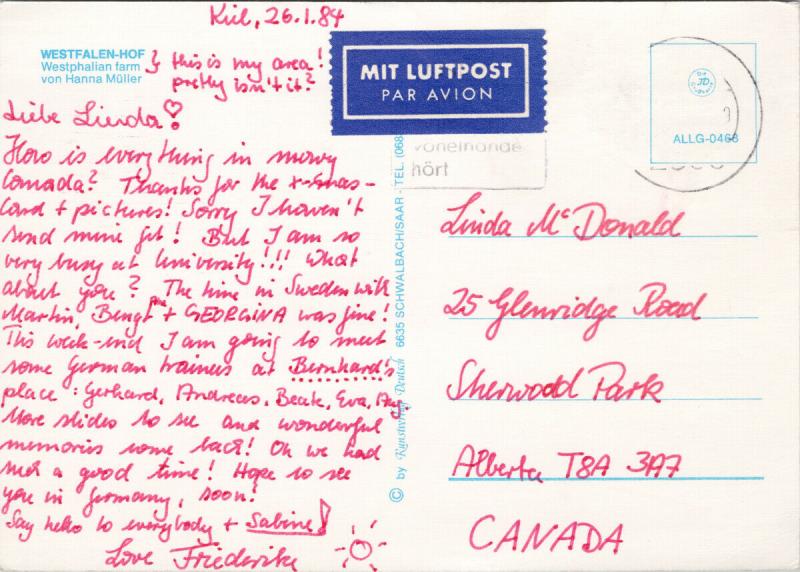 Kiel, 26.1.84
WESTFALEN-HOF
Westphalian farm
von Hanna Müller
} this is my area!
pretty isn't it?
MIT LUFTPOST
PAR AVION
voneinande
hört
ALLG-0468
Liebe Linda!
How is everything in snowy
Canada? Thanks for the x-mas-
card + pictures! Sorry I haven't
send mine yet! But I am so
very busy at University!!! What
about you? The time in Sweden with
Martin, Bengt + GEORGINA was fine!
This week-end I am going to meet
some German trainees at Bernhard's
place: Gerhard, Andreas, Beate, Eva,
More slides to see and wonderful
memories come back! Oh we had
such a good time! Hope to see
you in Germany, soon!
Say hello to everybody + Sabine!
Love Friederike
© by Kunstverlag Deutsch 6635 SCHWALBACH/SAAR - TEL. (068
Linda McDonald
25 Glenridge Road
Sherwodd Park
Alberta T8A 3A7
CANADA